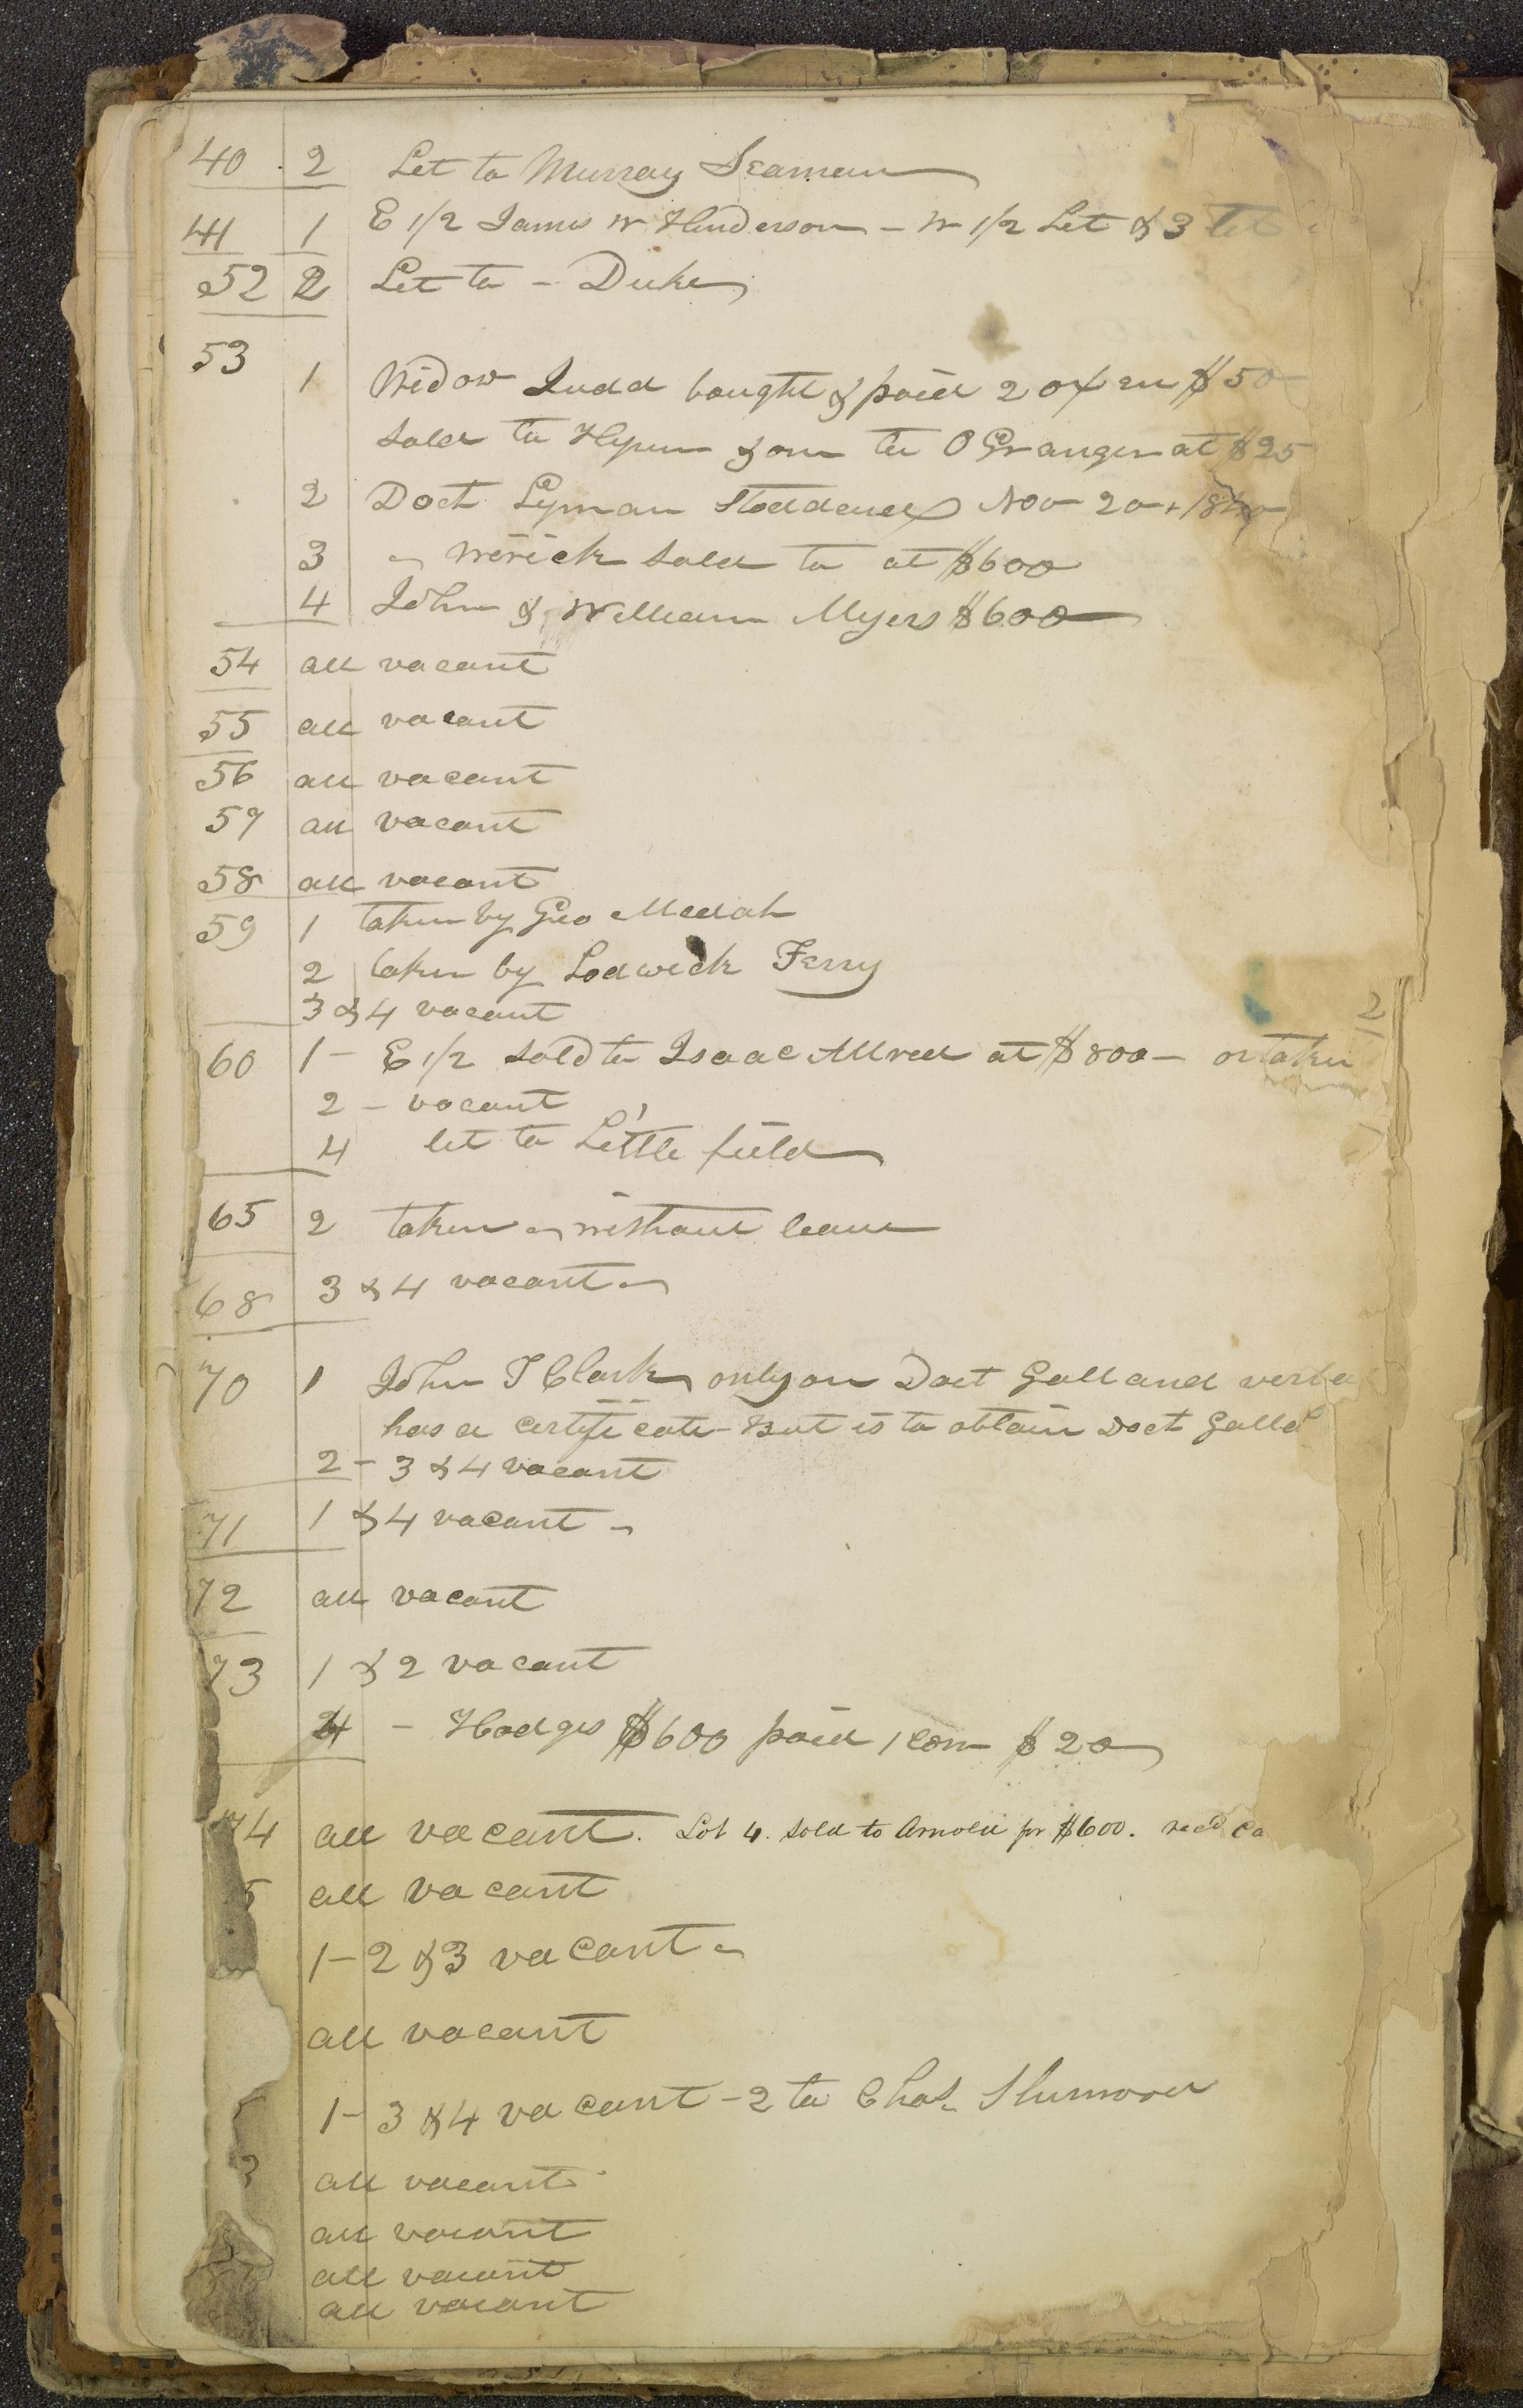 40 2 Let to Murray Seaman
41 1 E 1/2 James W Henderson - W 1/2 Let & 3 let
52 2 Let to - Duke
53
1 Widow Judd bought & paid 2 oxen $50
sold to Hyrum & one to O Granger at $25
2 Doct Lyman Stoddard Nov 20 1840
3 - Wirick sold to at $600
4 John & William Myers $600
54 all vacant
55 all vacant
56 all vacant
57 all vacant
58 all vacant
59 1 taken by Geo
2 taken by Lodwick Ferry
3 & 4 vacant
2
60 1 - E 1/2 sold to Isaac Allred at $800 - or taken
2 - vacant
4 let to Little field
65 2 taken - without leave
68 3 & 4 vacant -
70 1 John T Clark only on Doct Galland
has a certificate - But is to obtain Doct Galld
2 - 3 & 4 vacant
71 1 & 4 vacant -
72 all vacant
73 1 & 2 vacant
4 - Hodges $600 paid 1 cow $20
74 all vacant. Lot 4. sold to Arnold for $600. recd
5 all vacant
1 - 2 & 3 vacant -
all vacant
1 - 3 & 4 vacant - 2 to Chas.
all vacant
all vacant
all vacant
all vacant